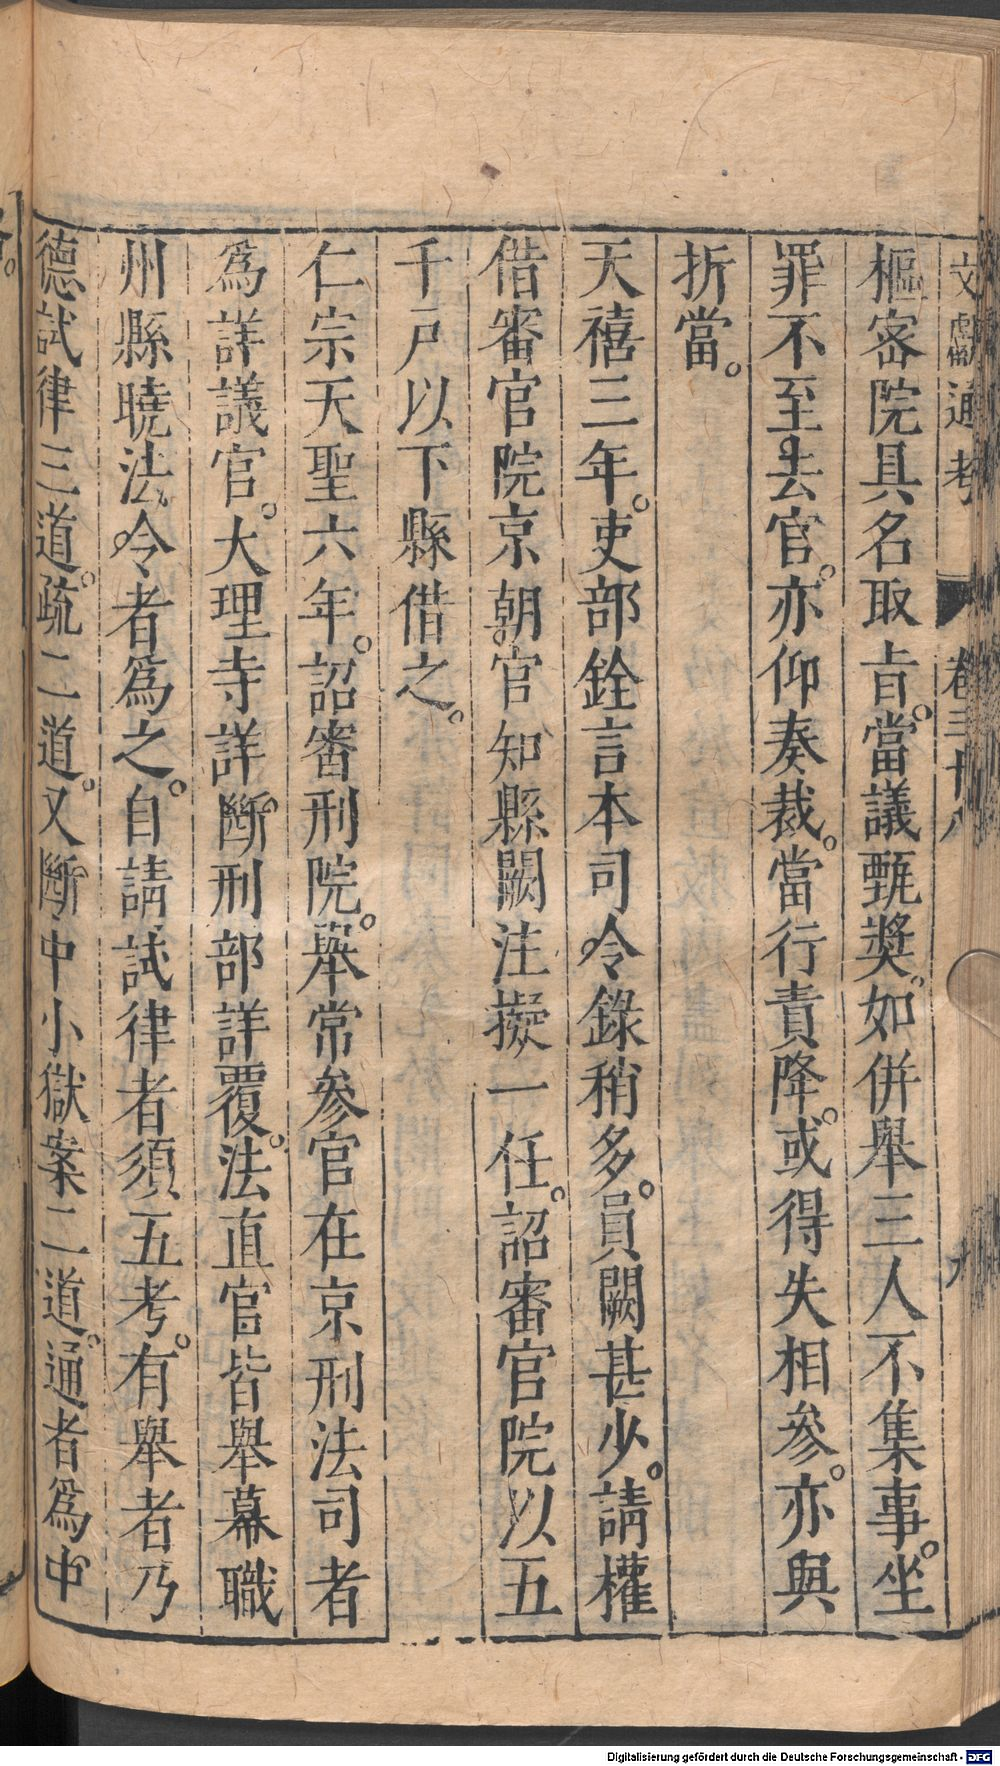 文獻通考 卷三十八 九
樞密院具名取旨。當議甄獎。如併舉三人不集事。坐
罪不至去官。亦仰奏裁。當行責降。或得失相參。亦與
折當。
天禧三年。吏部銓言本司令錄稍多。員闕甚少。請權
借審官院京朝。官知縣闕注擬一任。詔審官院以五
千戶以下縣借之。
仁宗天聖六年。詔審刑院。舉常參官在京刑法司者
爲詳議官。大理寺詳斷。刑部詳覆。法直官皆舉幕職
州縣曉法令者爲之。自請試律者須五考。有舉者乃
德試律三道。疏二道。又斷中小獄案二道。通者爲中
Digitalisierung gefördert durch die Deutsche Forschungsgemeinschaft - DFG